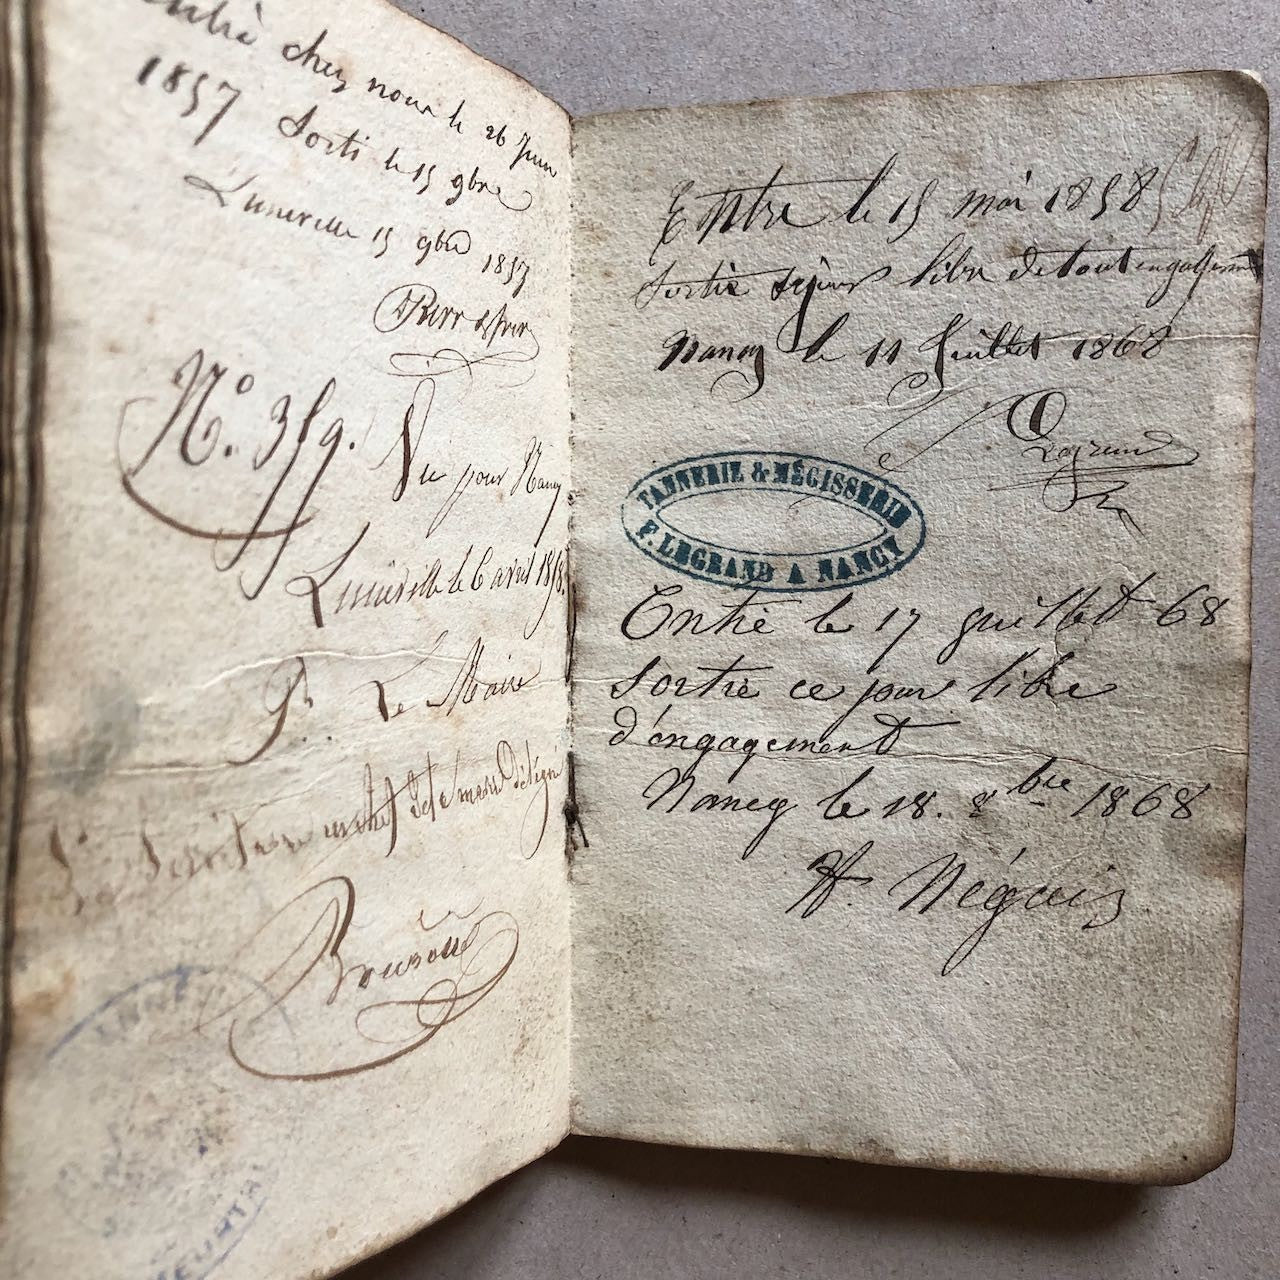 entré chez nous le 26 Juin
1857 Sorti le 15 9bre
Luneville 15 9bre 1857
N.° 359. Vu pour Nancy
Lunéville le 6 avril 1858.
Pr. Le Maire
délégué
MEURTHE
Entre le 15 mai 1858
Sortie libre de tout engagement
Nancy le 11 Juillet 1868
F. Legrand
TANNERIE & MÉGISSERIE
F. LEGRAND A NANCY
Entré le 17 guillett 68
Sortie ce jour libre
d'éngagement
Nancy le 18. 8bre 1868